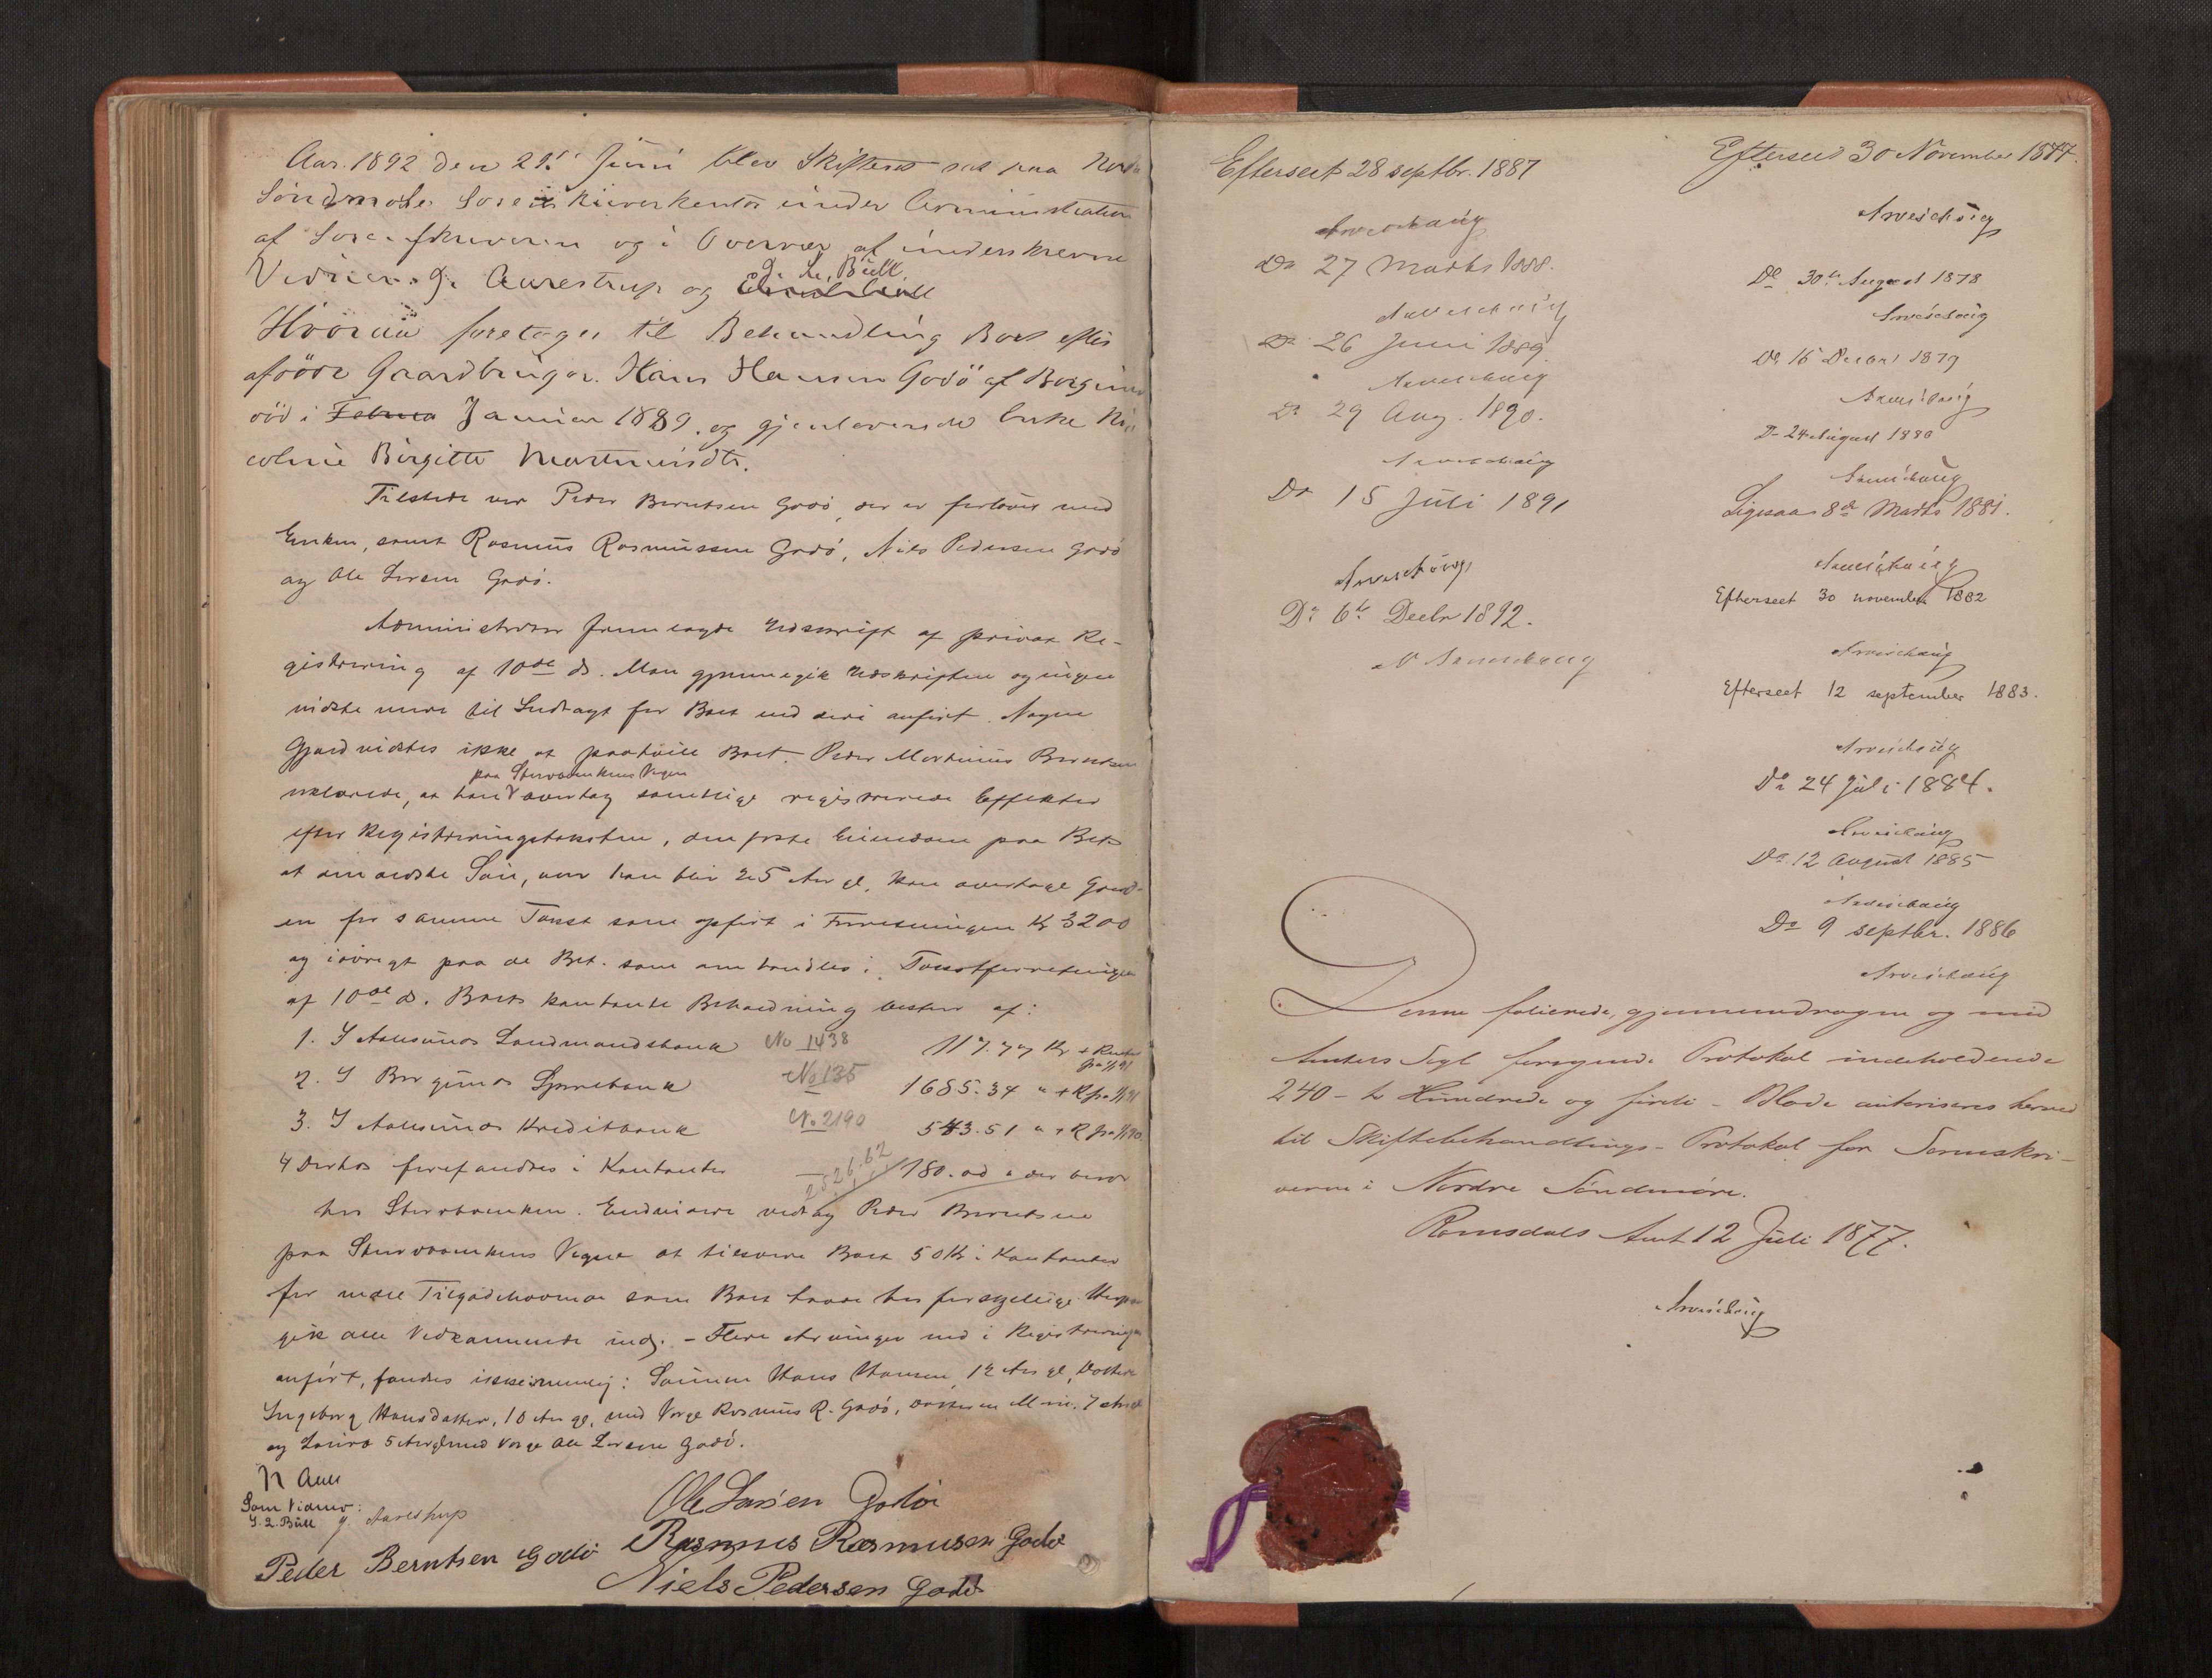 Aar 1892 den 21de Juni blev Skifteret sat paa Nordre
Söndmöre Sorenskriverkontor under Administration
af Sorenskriveren og i Overvær af underskrevne
Vidner: J. Aarestrup og
Hvorda foretoges til Behandling Boet efter
afdöde Gaardbruger Hans Hansen Godö af Borgund
död i Januar 1889 og gjenlevende Enke Ni-
coline Birgitte Martinusdtr.
Tilstede var Peder Berntsen Godö, der er forlovet med
Enken, samt Rasmus Rasmussen Godö, Niels Pedersen Godö
og Ole Larsen Godö.
Administrator fremlagde Udskrift af privat Re-
gistrering af 10de ds. Man gjennemgik Udskriften og ingen
vidste mere til Indtægt for Boet end deri anfört. Nogen
Gjæld vidstes ikke at paahvile Boet. Peder Martinus Berntsen
paa Stervboenkens Vegne
erklærede, at han overtog samtlige registrerede Effekter
efter Registreringstaksten, den faste Eiendom paa Bet.
at ældste Sön, naar han blir 25 Aar gl. kan overtage Gaard-
en for samme Taxst som opfört i Forretningen Kr 3200
og iövrigt paa de Bet. som omhandles i Taxstforretningen
af 10de ds. Boets kontante Beholdning bestaar af:
1. I Aalesunds Landmandsbank No 1438 117.77 Kr + Renter
2. I Borgunds Sparebank No 135 1685.34 " + R fra 1/1 91
3. I Aalesunds Kreditbank No. 2190 543.51 " + R fra 1/1 90
4 Derhos forefandtes i Kontanter 180.00 " der beror
2526.62
hos Stervboenken. Endvidere vedtog Peder Berntsen
paa Stervboenkens Vegne at tilsvare Boet 50 Kr i Kontanter
for alle Tilgodehavender som Boet havde hos forskjellige. Herpaa
gik alle Vedkommende ind. – Flere Arvinger end i Registreringen
anfört, fandtes ikke nemlig: Sönnen Hans Hansen 12 Aar gl, Datteren
Ingeborg Hansdatter, 10 Aar gl, med Verge Rasmus R. Godö, 7 Aar
og Laura 5 Aar gl med Verge Ole Larsen Godö.
Som Vidner:
J. Aarestrup
Ole Larsen Godöe
Rasmus Rasmusen Godö
Peder Berntsen Godö
Niels Pedersen Godö
Efterseet 28 septbr. 1887
Arveschoug
Do 27 Marts 1888.
Arveschoug
Do 26 Juni 1889.
Arveschoug
Do 29 Aug. 1890.
Arveschoug
Do 15 Juli 1891
Arveschoug
Do 6te Decbr 1892.
N Arveschoug
Efterseet 30 November 1877.
Arveschoug
Do 30te August 1878
Arveschoug
Do 16 Decbr 1879
Arveschoug
Do 24 August 1880
Arveschoug
Ligesaa 8de Marts 1881.
Arveschoug
Efterseet 30 november 1882
Arveschoug
Efterseet 12 september 1883.
Arveschoug
Do 24 Juli 1884.
Arveschoug
Do 12 August 1885
Arveschoug
Do 9 septbr. 1886
Arveschoug
Denne folierede, gjennemdragne og med
Amtets Segl forsynede Protokol indeholdende
240 – to Hundrede og firti – Blade autoriseres herved
til Skiftebehandlings-Protokol for Sorenskri-
veren i Nordre Söndmöre.
Romsdals Amt 12 Juli 1877.
Arveschoug